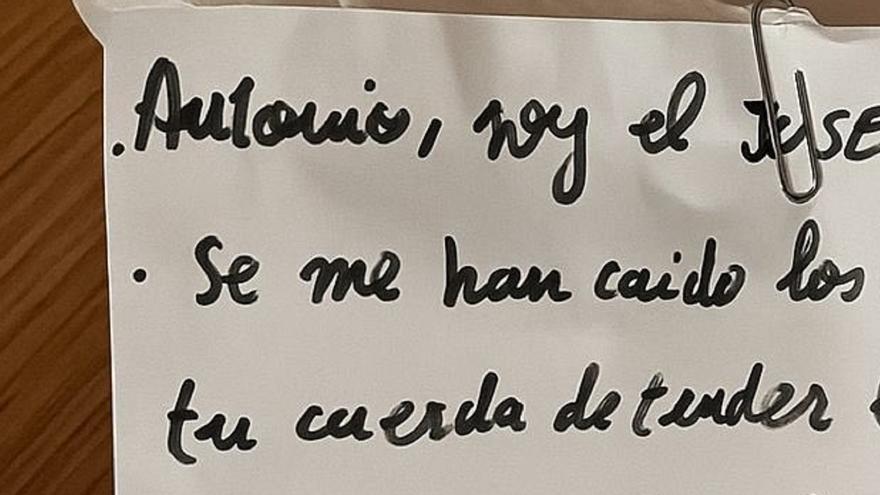 .Antonio, soy el
· Se me han caido los
tu cuerda de tender